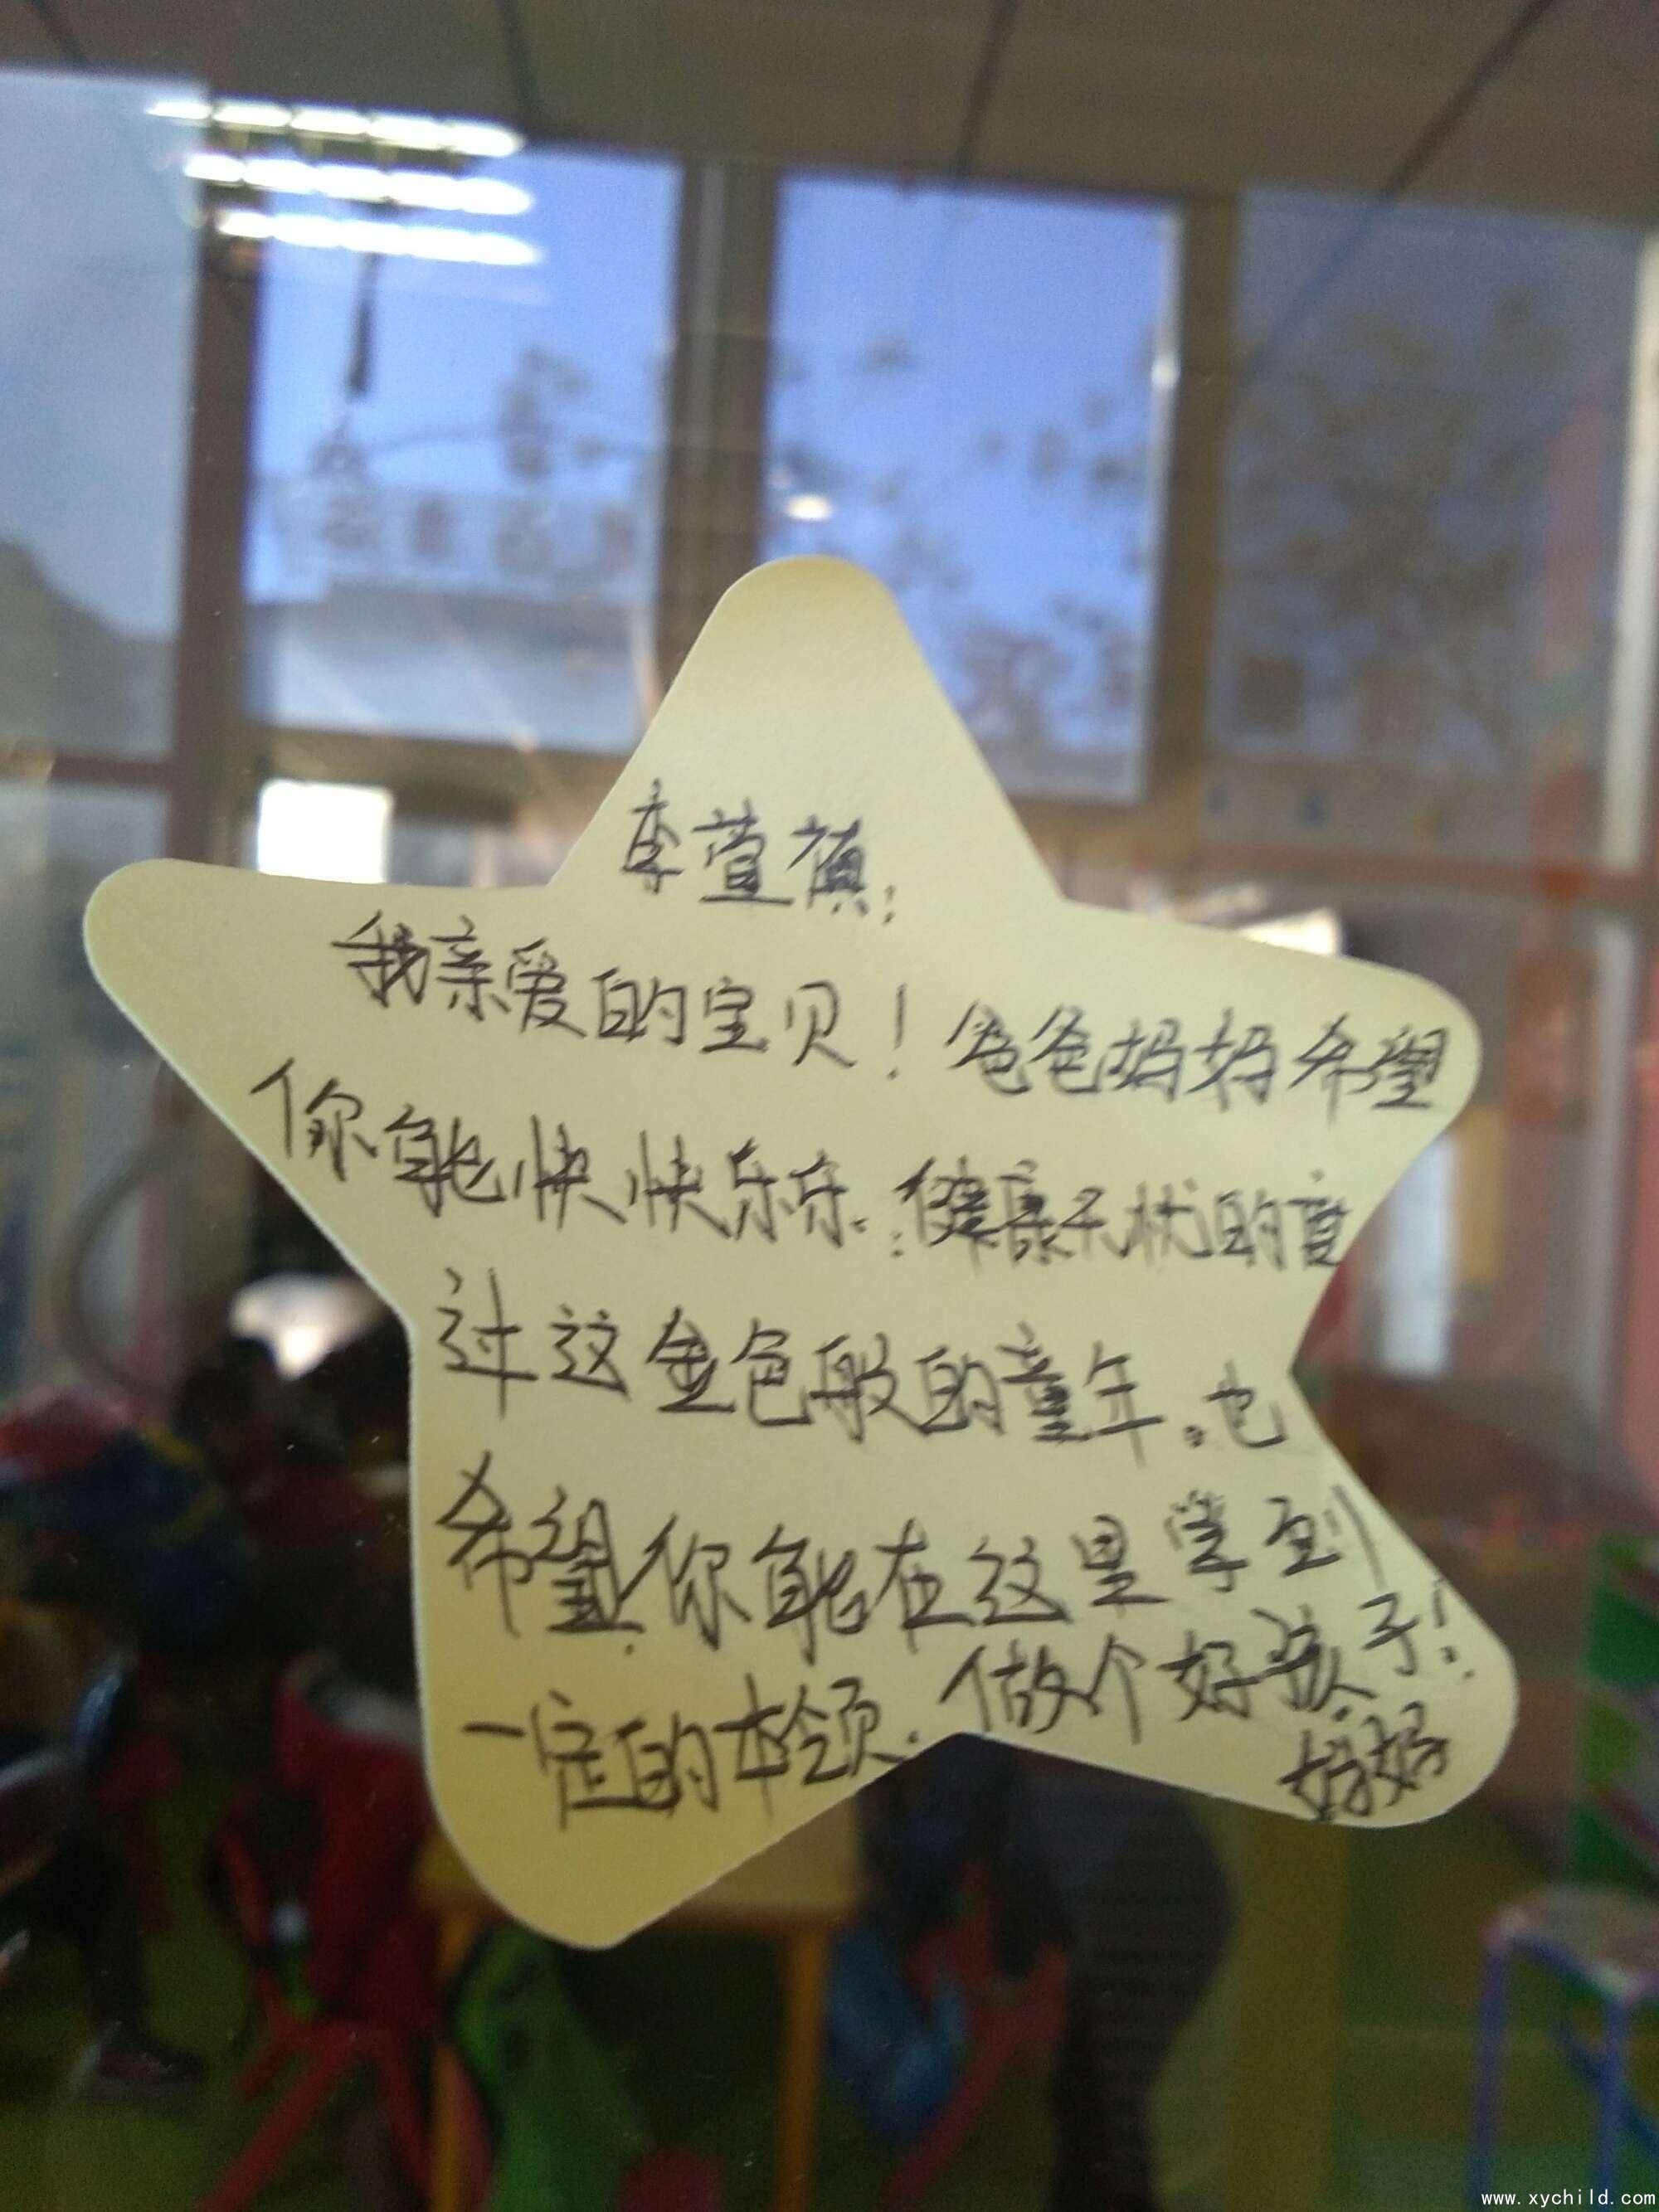 李萱禛:
我亲爱的宝贝！爸爸妈妈希望
你能快快乐乐.健康无忧的度
过这金色般的童年。也
希望你能在这里学到
一定的本领.做个好孩子！
妈妈
www.xychild.com